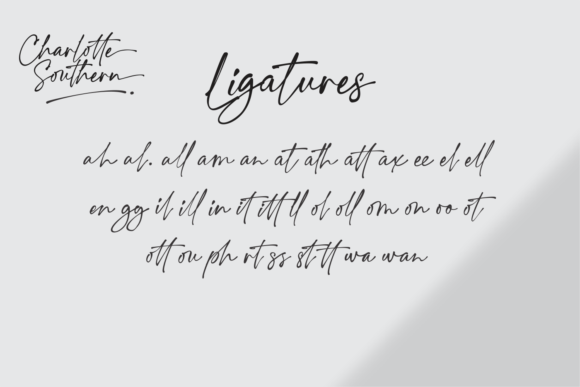 Charlotte
Southern
Ligatures
ah al. all am an at ath att ax ee el ell
en gg il ill in it itt ll ol oll om on oo ot
ott ou ph rt ss st tt wa wan